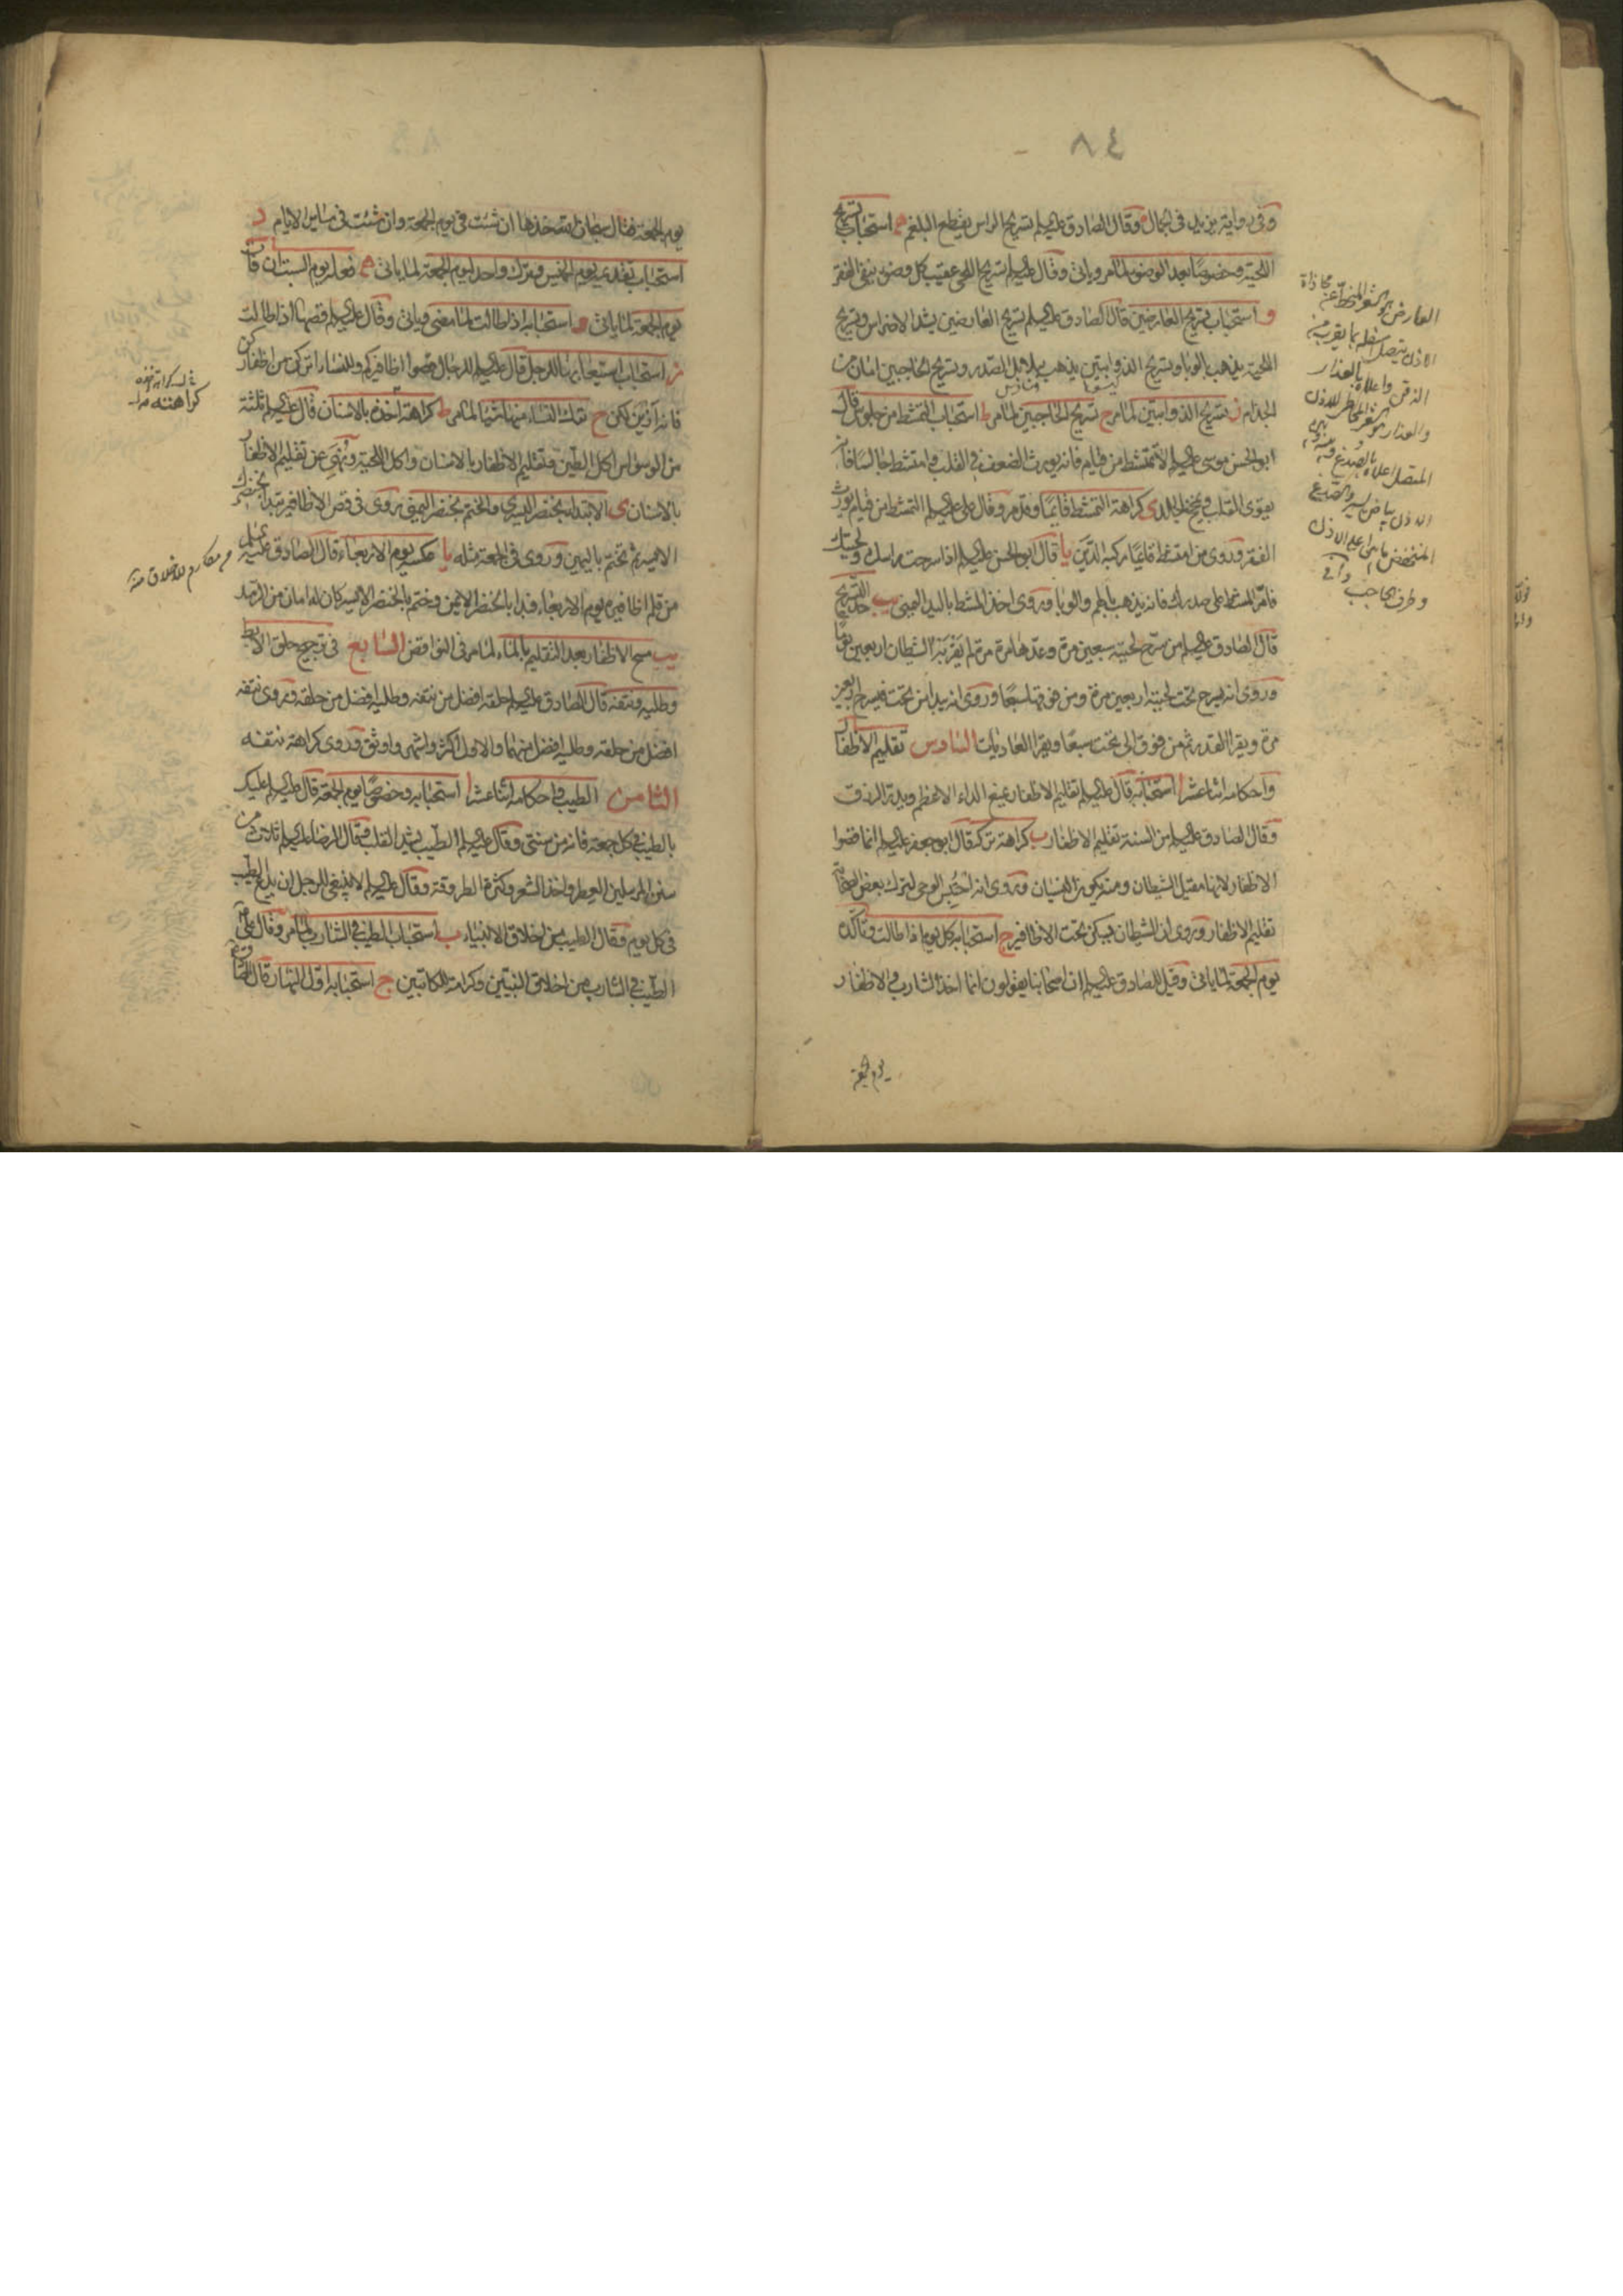 ٨٤
وفى رواية يزيد فى الجمال وقال الصادق عليه السلم تسريح الراس يقطع البلغم ه استحباب تسريح
اللحية وخصوصا بعد الوضوء لما مر وياتى وقال عليه السلم تسريح اللحى عقيب كل وضوء ينفى الفقر
و استحباب تسريح العارضين قال الصادق عليه السلم تسريح العارضين يشد الاضراس وتسريح
اللحية يذهب بالوبا وتسريح الذوابتين يذهب ببلابل الصدر وتسريح الحاجبين امان من
الجذام ز تسريح الذوابتين لما مر ح تسريح الحاجبين لما مر ط استحباب التمشط من جلوس قال
ابو الحسن موسى عليه السلم لا تمتشط من قيام فانه يورث الضعف فى القلب وامتشط جالسا فانه
يقوى القلب ويمخخ الجلدى كراهة التمشط قائما وقد مر وقال على عليه السلم التمشط من قيام يورث
الفقر وروى من امتشط قائما ركبه الدين يا قال ابو الحسن عليه السلم اذا سرحت راسك ولحيتك
فامر المشط على صدرك فانه يذهب بالهم والوبا وروى اخذ المشط باليد اليمنى يب حد التسريح
قال الصادق عليه السلم من سرح لحيته سبعين مرة وعدها مرة مرة لم يقربه الشيطان اربعين يوما
وروى انه يسرح تحت لحيته اربعين مرة ومن فوقها سبعا وروى انه يبدا من تحت فيسرح اربعين
مرة ويقرا القدر ثم من فوق الى تحت سبعا ويقرا العاديات السادس تقليم الاظفار
واحكامه اثنا عشر ا استحبابه قال عليه السلم تقليم الاظفار يمنع الداء الاعظم ويدر الرزق
وقال الصادق عليه السلم من السنة تقليم الاظفار ب كراهة تركه قال ابو جعفر عليه السلم انما قصوا
الاظفار لانها مقيل الشيطان ومنه يكون النسيان وروى انه احتبس الوحى لترك بعض الصحابة
تقليم الاظفار وروى ان الشيطان يسكن تحت الاظافير ج استحبابه كل يوم اذا طالت وتاكده
يوم الجمعة لما ياتى وقيل للصادق عليه السلم ان اصحابنا يقولون انما اخذ الشارب والاظفار
يوم الجمعة
العارض هو الشعر المنحط عن محاذاة
الاذن يتصل اسفله بما يقرب من
الذقن واعلاه بالعذار
والعذار هو الشعر المحاذى للاذن
المتصل اعلاه بالصدغ
الاذن بياض يسير والصدغ
المنخفض ما بين اعلى الاذن
وطرف الحاجب
يوم الجمعة فقال سبحان الله خذها ان شئت فى يوم الجمعة وان شئت فى ساير الايام د
استحباب تقديمه يوم الخميس وترك واحد ليوم الجمعة لما ياتى ه فعله يوم السبت ان فات
يوم الجمعة لما ياتى و استحبابه اذا طالت لما مضى وياتى وقال عليه السلم قصها اذا طالت
ز استحباب استيعابها للرجل قال عليه السلم للرجال قصوا اظافيركم وللنساء اتركن من اظفاركن
فانه ازين لكن ح ترك النساء منها شيئا لما مر ط كراهة اخذه بالاسنان قال عليه السلم ثلثة
من الوسواس اكل الطين وتقليم الاظفار بالاسنان واكل اللحية ونهى عن تقليم الاظفار
بالاسنان ى الابتداء بخنصر اليسرى والختم بخنصر اليمنى روى فى قص الاظافير تبدا بخنصرك
الايسر ثم تختم باليمين وروى فى الجمعة مثله يا عكسه يوم الاربعاء قال الصادق عليه السلم
من قلم اظافيره يوم الاربعاء فبدا بالخنصر الايمن وختم بالخنصر الايسر كان له امان من الرمد
يب مسح الاظفار بعد التقليم بالماء لما مر فى النواقض السابع فى ترجيح حلق الابط
وطليه ونتفه قال الصادق عليه السلم حلقه افضل من نتفه وطليه افضل من حلقه وروى نتفه
افضل من حلقه وطليه افضل منهما والاول اكثر واشهر واوثق وروى كراهة نتفه
الثامن الطيب واحكامه اثنا عشر ا استحبابه وخصوصا يوم الجمعة قال عليه السلم عليك
بالطيب فى كل جمعة فانه من سنتى وقال عليه السلم الطيب يشد القلب وقال الرضا عليه السلم ثلاث من
سنن المرسلين العطر واخذ الشعر وكثرة الطروقة وقال عليه السلم لا ينبغى للرجل ان يدع الطيب
فى كل يوم وقال الطيب من اخلاق الانبياء ب استحباب الطيب فى الشارب لما مر وقال على
الطيب فى الشارب من اخلاق النبيين وكرامة للكاتبين ج استحبابه اول النهار قال الصادق
كراهته
مكارم الاخلاق